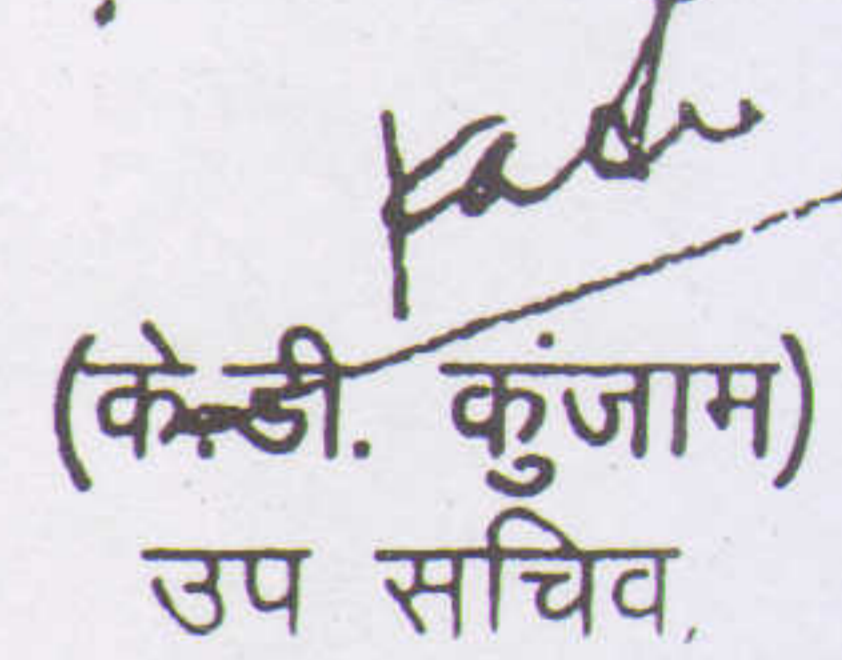 (के.डी. कुंजाम)
उप सचिव,